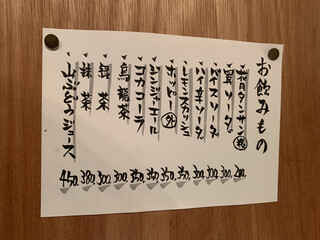 お飲みもの
タンサン 200.
ソーダ 300.
バイスソーダ 300.
ハイ辛ソーダ 300.
レモンスカッシュ 350.
ホッピー 外 350.
ジンジャーエール 350.
コカコーラ 350.
烏龍茶 300.
緑茶 300.
抹茶 380.
山ぶどうジュース 450.